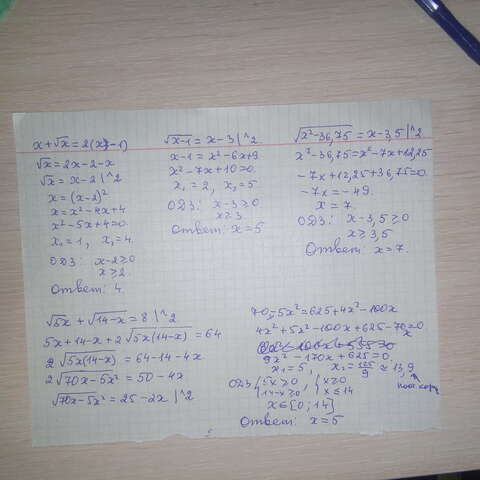 x+√x = 2(x-1)
√x = 2x-2-x
√x = x-2 |^2
x = (x-2)²
x = x²-4x+4
x²-5x+4=0
x₁ = 1, x₂ = 4.
ОДЗ: x-2≥0
x≥2.
Ответ: 4.
√x-1 = x-3 |^2
x-1 = x²-6x+9
x²-7x+10=0.
x₁ = 2, x₂ = 5.
ОДЗ: x-3≥0
x≥3.
Ответ: x=5
√x²-36,75 = x-3,5 |^2
x²-36,75 = x²-7x+12,25
-7x+12,25+36,75=0.
-7x = -49.
x = 7.
ОДЗ: x-3,5≥0
x≥3,5
Ответ: x=7.
√5x + √14-x = 8 |^2
5x+14-x+2√5x(14-x) = 64
2√5x(14-x) = 64-14-4x
2√70x-5x² = 50-4x
√70x-5x² = 25-2x |^2
70-5x² = 625+4x²-100x
4x²+5x²-100x+625-70x=0
9x²-170x+625=0
x₁ = 5, x₂ = 125/9 ≈ 13,9
ОДЗ { 5x≥0 { x≥0
14-x≥0 x≤14
x∈[0;14]
Ответ: x=5